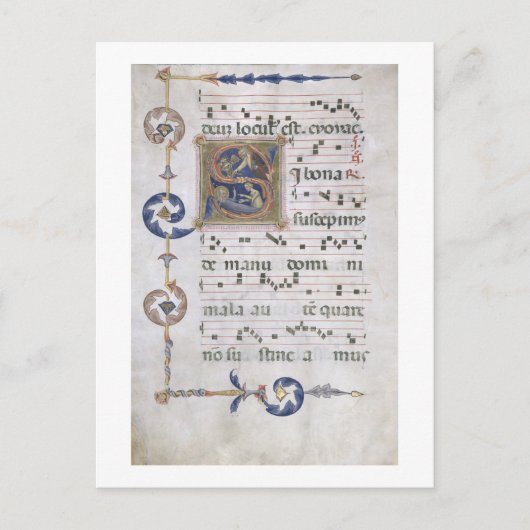 deuz locut' est. evovae.
I.ā.
S I bona R.
suscepimus
de manu domi ni
mala au tē quare
nō su stinea mus